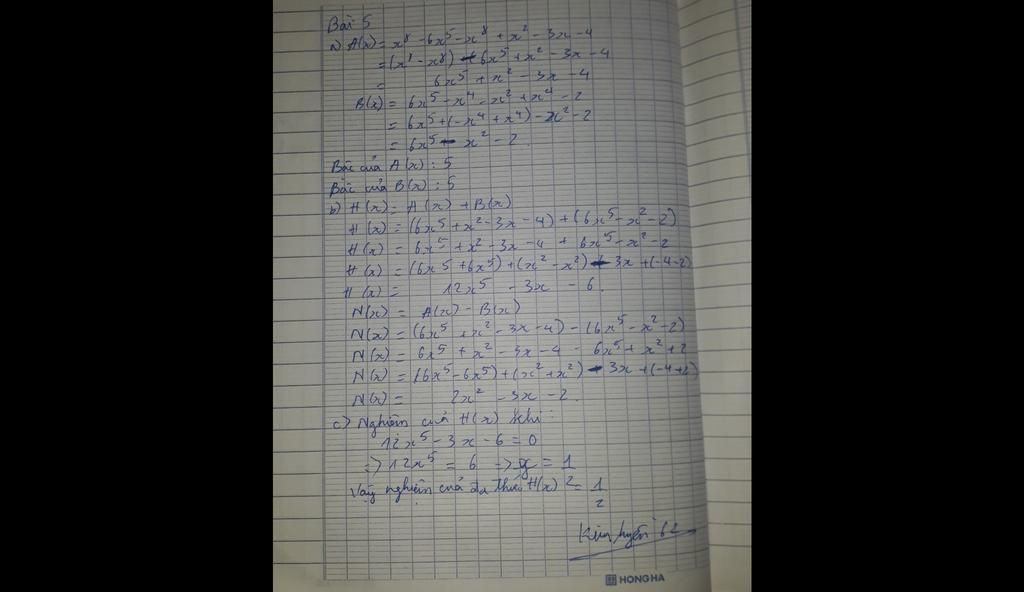 Bài 5
a) A(x) = x⁸ - 6x⁵ - x⁸ + x² - 3x - 4
= (x⁸ - x⁸) + 6x⁵ + x² - 3x - 4
= 6x⁵ + x² - 3x - 4
B(x) = 6x⁵ - x⁴ - x² + x⁴ - 2
= 6x⁵ + (-x⁴ + x⁴) - x² - 2
= 6x⁵ - x² - 2.
Bậc của A(x) : 5
Bậc của B(x) : 5
b) H(x) = A(x) + B(x)
H(x) = (6x⁵ + x² - 3x - 4) + (6x⁵ - x² - 2)
H(x) = 6x⁵ + x² - 3x - 4 + 6x⁵ - x² - 2
H(x) = (6x⁵ + 6x⁵) + (x² - x²) - 3x + (-4-2)
H(x) = 12x⁵ - 3x - 6.
N(x) = A(x) - B(x)
N(x) = (6x⁵ + x² - 3x - 4) - (6x⁵ - x² - 2)
N(x) = 6x⁵ + x² - 3x - 4 - 6x⁵ + x² + 2
N(x) = (6x⁵ - 6x⁵) + (x² + x²) - 3x + (-4+2)
N(x) = 2x² - 3x - 2.
c) Nghiệm của H(x) khi :
12x⁵ - 3x - 6 = 0
=> 12x⁵ = 6 => x = 1/2
Vậy nghiệm của đa thức H(x) = 1/2
HONG HA